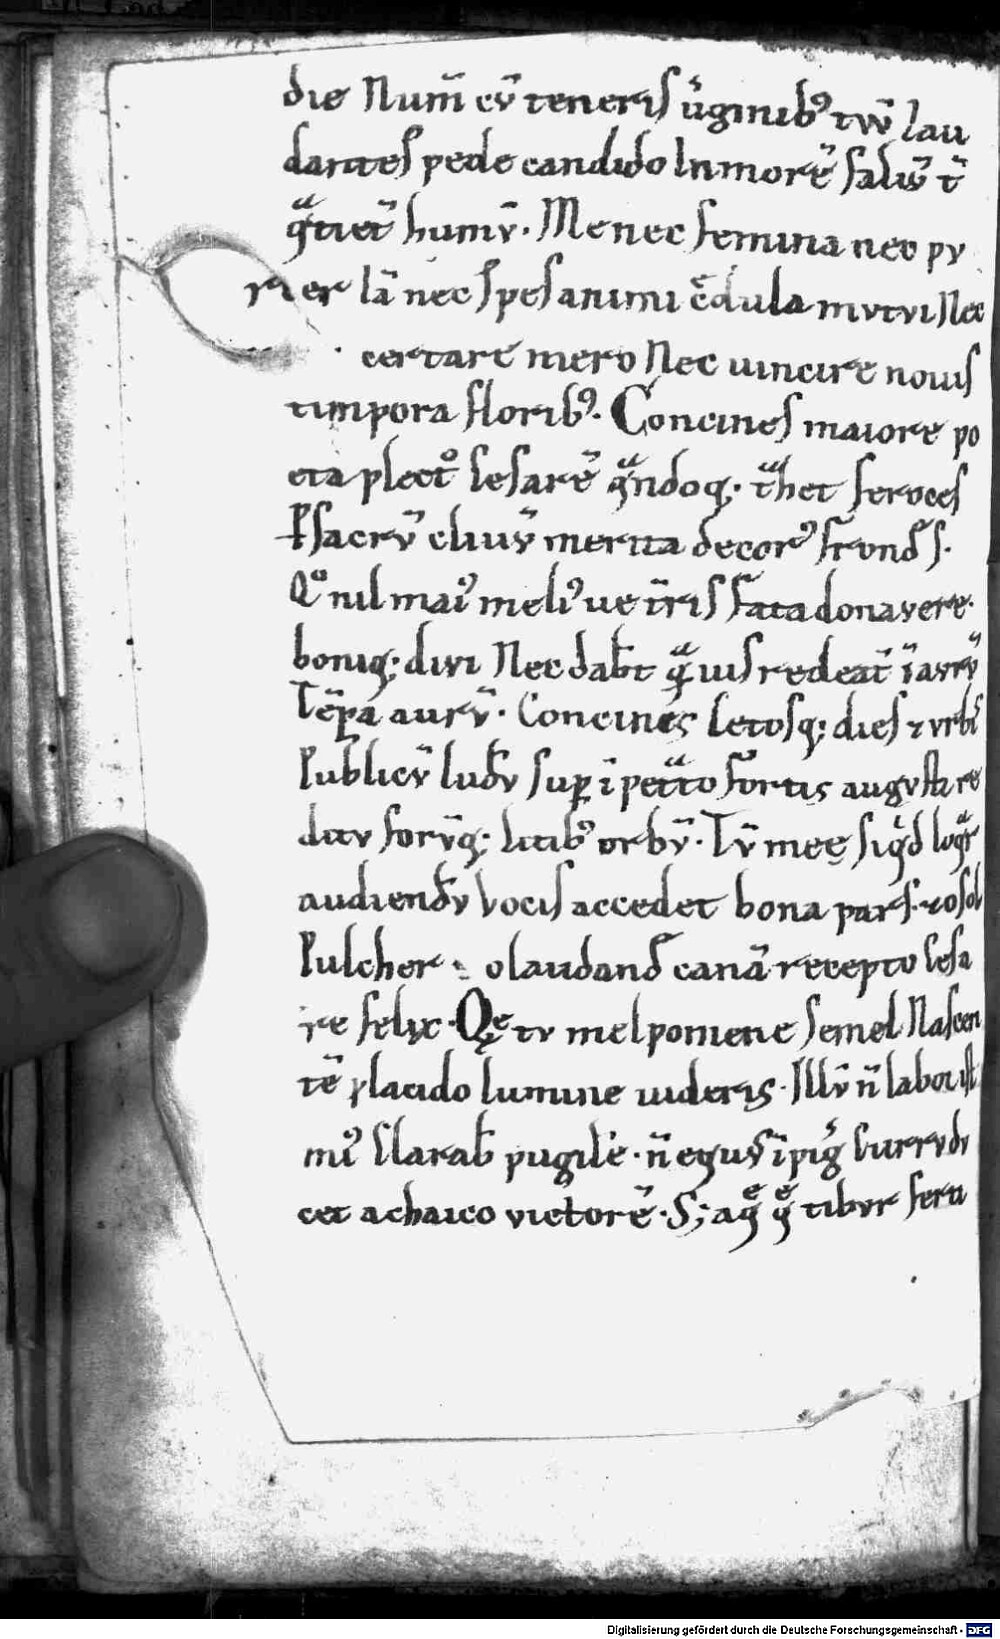 die Num̄ cv̄ teneris ủginib⁹ tvv̄ lau
dantes pede candido In morē salivv̄ t̄
q̾tiet̄ humv̄. Me nec femina nec pv
er iā nec spes animi c̄dula mvtvi Nec
certare mero Nec uincire novis
timpora florib⁹. Concines maiore po
eta plect͛o Cesarē qᷓndoq; tᷓhet feroces
ꝑ sacrv̄ clivv̄ merita decor⁹ frond̄.
Qͦ nil mai⁹ meli⁹ ue t̄ris fata donavere
boniq; divi Nec dab̄t qᷓuis redeat̄ ī avrv̄
Tēpa aurv̄. Concines letosq; dies ⁊ vrb̄
Publicv̄ ludv̄ suꝑ īpetᷓto fortis avgvsti re
ditv forv̄q; litib⁹ orbv̄. Tv̄ meę siqͥd loqᷓr
audiendv̄ Vocis accedet bona pars. ⁊ o sol
Pulcher o laudand̄ canā recepto Cesa
re felix. Qę tv melpomene semel Nascen
tē placido lumine uideris. Illv̄ n̄ labor ist
mi⁹ Clarab̄ pugilē. n̄ equ⁹ īpig̾ Curru dv
cet achaico victorē. S; aqͤ qͤ tibvr ferti
Digitalisierung gefördert durch die Deutsche Forschungsgemeinschaft - DFG